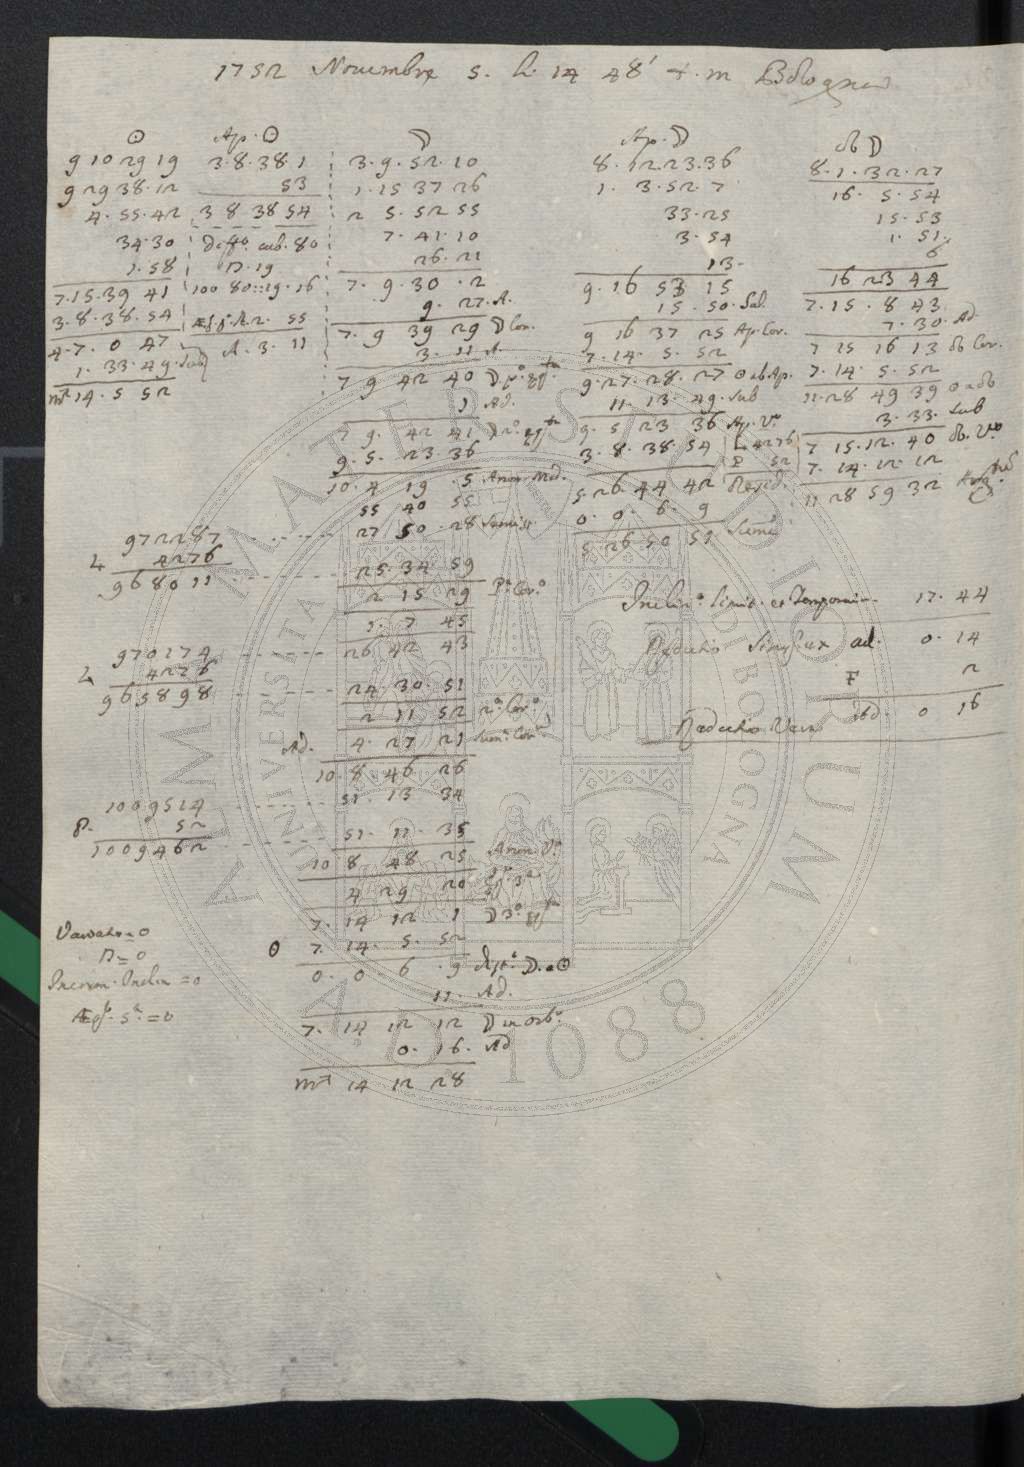 1752 Nouembre 5. h. 14 48' t. m Bologna
☉
9 10 29 19
9 29 38. 12
4. 55. 42
34. 30
1. 58
7. 15. 39 41
3. 8. 38. 54
4. 7. 0 47
1. 33. 49. Sub
14. 5 52
Ap. ☉
3. 8. 38. 1
53
3 8 38 54
cub. 80
D. 19
100 80 :: 19. 16
2. 55
A. 3. 11
☽
3. 9. 52. 10
1. 15 37 26
2 5. 52 55
7. 41. 10
26. 21
7. 9. 30. 2
9. 27. A.
7. 9 39 29 ☽ Cor.
3. 11 A
7 9 42 40 ☽
1 Ad.
7 9. 42 41 ☽ 2º
9. 5. 23. 36
10. 4 19 . 5 Anom. Med.
55 40 55
27 50. 28
25. 34. 59
2 15 29 Pª Corº
1. 7 45
26 42 43
24. 30. 51
2 11 52 2ª Corº
Ad. 4. 27 21
10. 8. 46 26
51. 13 34
51. 11. 35
10 8 48 25 Anom. Vª
4 29 20 3ª
7. 14 12 1 ☽ 3º
☉ 7. 14. 5. 52
0. 0. 6. 9 dist. ☽ a ☉
11. Ad.
7. 14 12 12 ☽ in orbª
0. 16. Ad
14 12 28
972287
L 4276
968011
970174
L 4276
965898
1009514
P. 52
1009462
= 0
D = 0
Inclin = 0
5ª = 0
Ap. ☽
8. 12. 23. 36
1. 3. 52. 7
33. 25
3. 54
13.
9. 16 53 15
15. 50. Sub.
9 16 37 25 Ap. Cor.
7. 14. 5. 52
9. 27. 28. 27 ☉ ab Ap.
11. 13. 49. Sub
9. 5 23 36 Ap. Vº
3. 8. 38. 54 L. 4276
P 52
5. 26. 44 42
0. 0. 6. 9
5 26 50 51
☊ ☽
8. 1. 32. 27
16. 5. 54
15. 53
1. 51
6
16 23 44
7. 15. 8 43
7. 30. Ad
7 15 16 13 ☊ Cor.
7. 14. 5. 52
11. 28 49 39 ☉ a ☊
3. 33. Sub
7 15. 12. 40 ☊. Vº
7. 14. 12. 12
11 28 59 32
Inclinº limit. 17. 44
Reductio ad. 0. 14
F 2
Reductio Vera Ad. 0 16
ALMA MATER STUDIORUM
UNIVERSITÀ DI BOLOGNA
A.D. 1088